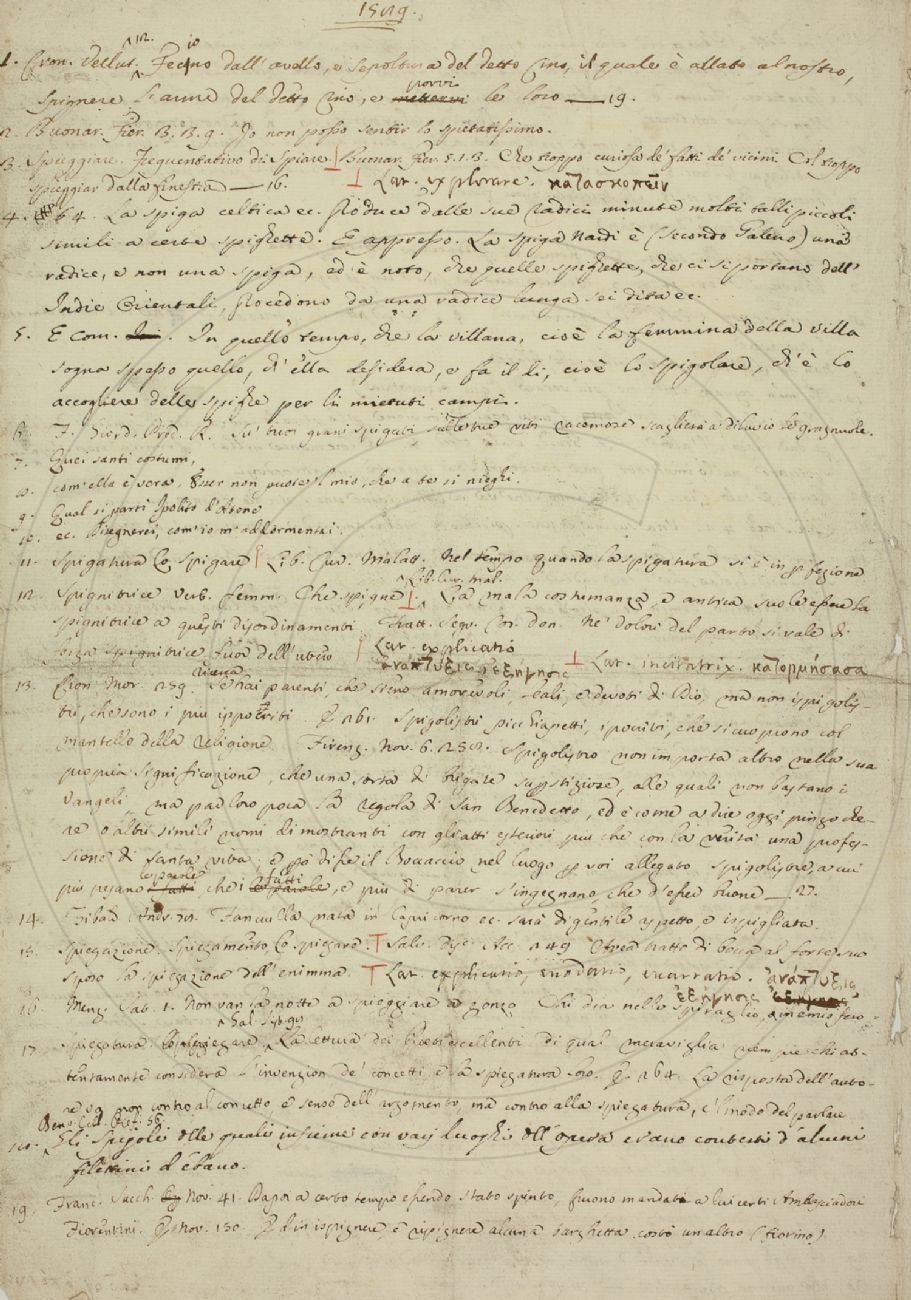 1529.
1. Cron. Vellut. 12. Fecino dall'avello, o sepoltura del detto Cino, il quale è allato al nostro,
spignere l'arme del detto Cino, e porvi le loro — 19.
2. Buonar. Fier. 3. 3. 9. Io non posso sentir lo spietatissimo.
3. Spieggiare. Frequentativo di Spiare. Buonar. Fier. 5. 1. 3. Che troppo curiosa de' fatti de' vicini. Col troppo
spieggiar dalla finestra — 16. Lat. explorare. κατασκοπεῖν
4. 64. La spiga celtica ec. produce dalle sue radici minute molti talli piccoli
simili a certe spighette. E appresso. La spiga nardi è (secondo Galeno) una
radice, e non una spiga, ed è noto, che quelle spighette, che ci si portano dell'
Indie Orientali, procedono da una radice lunga sei dita ec.
5. E com. In quello tempo, che la villana, cioè la femmina della villa
sogna spesso quello, ch'ella desidera, e fa il dì, cioè lo spigolare, ch'è lo
accogliere delle spighe per li mietuti campi.
6. F. Giord. Pred. R. Su' tuoi grani spigati sulle tue viti racemose scaglierà a diluvio le gragnuole.
7. Quei santi costumi,
8. com'ella è vera. Esser non puote il mio, che a te si nieghi.
9. Qual si partì Ipolito d'Atene
10. ec. Disegnerei, com'io m'addormentai.
11. Spigatura Lo spigare Lib. Cur. Malatt. Nel tempo quando la spigatura si è in perfezione
12. Spignitrice Verb. femm. Che spigne Lib. Cur. mal. La mala costumanza, e antica suole esser la
spignitrice a questi disordinamenti Tratt. Segr. Cos. don. Ne' dolori del parto si vale di
forza spignitrice fuor dell'utero Lat. explicatio
ἀνάπτυξις, ἐξήγησις Lat. incitatrix. κατορμήσασα
13. Cron. Mor. 259. Ricerca se hai parenti, che sieno amorevoli, leali, e devoti di Dio, ma non ispigolis-
tri, che sono i più ippocriti. E 261. Spigolistri picchiapetti, ipocriti, che si cuoprono col
mantello della religione. Firenz. Nov. 6. 252. Spigolistro non importa altro nella sua
propria significazione, che una sorta di brigate superstiziose, alle quali non bastano i
Vangeli, ma par loro poca la regola di San Benedetto, ed è come a dire oggi pinzoche-
re o altri simili nomi dimostranti con gli atti esteriori più che con la verità una profes-
sione di santa vita; e però disse il Boccaccio nel luogo per voi allegato spigolistre, a cui
più pesano le parole che i fatti, e più di parer s'ingegnano, che d'esser buone — 27.
14. Tribald. Andr. 78. Fanciulla nata in Capricorno ec. sarà di gentile aspetto, e ispigliata.
15. Spiegazione. Spiegamento Lo spiegare. Salv. Disc. Acc. 149. Avea tratto di bocca al forte suo
sposo la spiegazione dell'enimma. Lat. explicatio, enodatio, enarratio. ἀνάπτυξις
ἐξήγησις
16. Menz. Sat. 1. Non van la notte a spieggiare a zonzo Chi dia nello spiraglio,
17. Spiegatura Lo spiegare, Salv. La lettura dei poeti eccellenti di qual meraviglia non pie chi at-
tentamente considera l'invenzion de' concetti, e la spiegatura loro. E 264. La risposta dell'auto-
re va non contro al concetto, e senso dell'argomento, ma contro alla spiegatura, e 'l modo del parlare
18. Benv. Cell. Oref. 56. Gli spigoli delle quali insieme con varj luoghi dell'opera erano contesti d'alcuni
filettini d'ebano.
19. Franc. Sacch. Nov. 41. Dapoi a certo tempo essendo stato spinto, furono mandati a lui certi Ambasciadori
Fiorentini. E Nov. 130. E d'in ispignere, e rispignere alcuna barghetta costò un altro (fiorino)